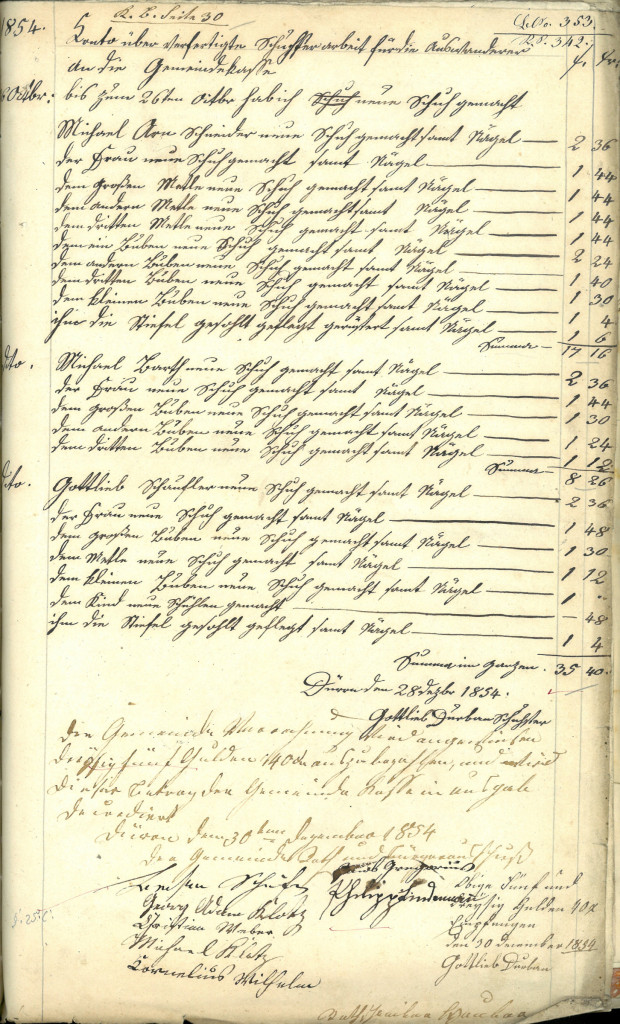 R. B. Seite 30
No. 353.
1854.
R.S. 342.
Konto über verfertigte Schusterarbeit für die Auswanderer
An die Gemeindekasse
f. kr:
Oktbr:
bis zum 26ten Oktbr hab ich Schuh neue Schuh gemacht
Michael Arn Schneider neue Schuh gemacht samt Nägel — 2 36
der Frau neue Schuh gemacht samt Nägel — 1 44
dem großen Metle neue Schuh gemacht samt Nägel — 1 44
dem andern Metle neue Schuh gemacht samt Nägel — 1 44
dem dritten Metle neue Schuh gemacht samt Nägel — 1 44
dem ein Buben neue Schuh gemacht samt Nägel — 2 24
dem andern Buben neue Schuh gemacht samt Nägel — 1 40
dem dritten Buben neue Schuh gemacht samt Nägel — 1 30
dem kleinen Buben neue Schuh gemacht samt Nägel — 1 4
ihm die Stiefel gesohlt geflegt samt Nägel — 1 6
Summa — 17 16
dto. Michael Barth neue Schuh gemacht samt Nägel — 2 36
der Frau neue Schuh gemacht samt Nägel — 1 44
dem großen Buben neue Schuh gemacht samt Nägel — 1 30
dem andern Buben neue Schuh gemacht samt Nägel — 1 24
dem dritten Buben neue Schuh gemacht samt Nägel — 1 12
Summa — 8 26
dito. Gottlieb Schaufler neue Schuh gemacht samt Nägel — 2 36
der Frau neue Schuh gemacht samt Nägel — 1 48
dem großen Buben neue Schuh gemacht samt Nägel — 1 30
dem Metle neue Schuh gemacht samt Nägel — 1 12
dem kleinen Buben neue Schuh gemacht samt Nägel — 1 "
dem Kind neue Schühlen gemacht — – 48
ihm die Stiefel gesohlt geflegt samt Nägel — 1 4
Summa im ganzen. 35 40.
Dürrn den 28 Dezbr 1854.
Gottlieb Durban Schuster
Die Gemeinde Verrechnung wird angewiesen
dreißig fünf Gulden 40 x auszubezahlen, und wird
dieser Betrag der Gemeinde Kasse in Ausgab
decredirt
Dürrn dem 30ten Dezember 1854
Der Gemeinde Rath und Bürgerausschuß
Gregorius
Philipp Lindemann
Georg Adam Klotz
Christian Weber
Michael Klotz
Cornelius Wilhelm
Obige Fünf und
dreysig Gulden 40 x
Empfangen
den 30 December 1854
Gottlieb Durban